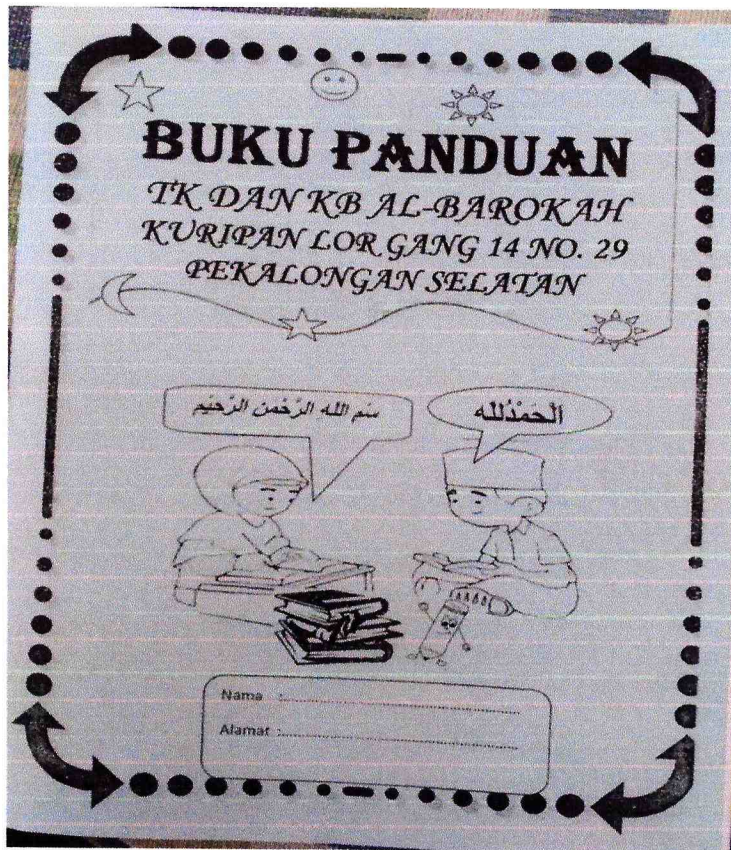 BUKU PANDUAN
TK DAN KB AL-BAROKAH
KURIPAN LOR GANG 14 NO. 29
PEKALONGAN SELATAN
سْمِ اللهِ الرَّحْمنِ الرَّحيْمِ
اَلْحَمْدُلله
Nama :
Alamat :